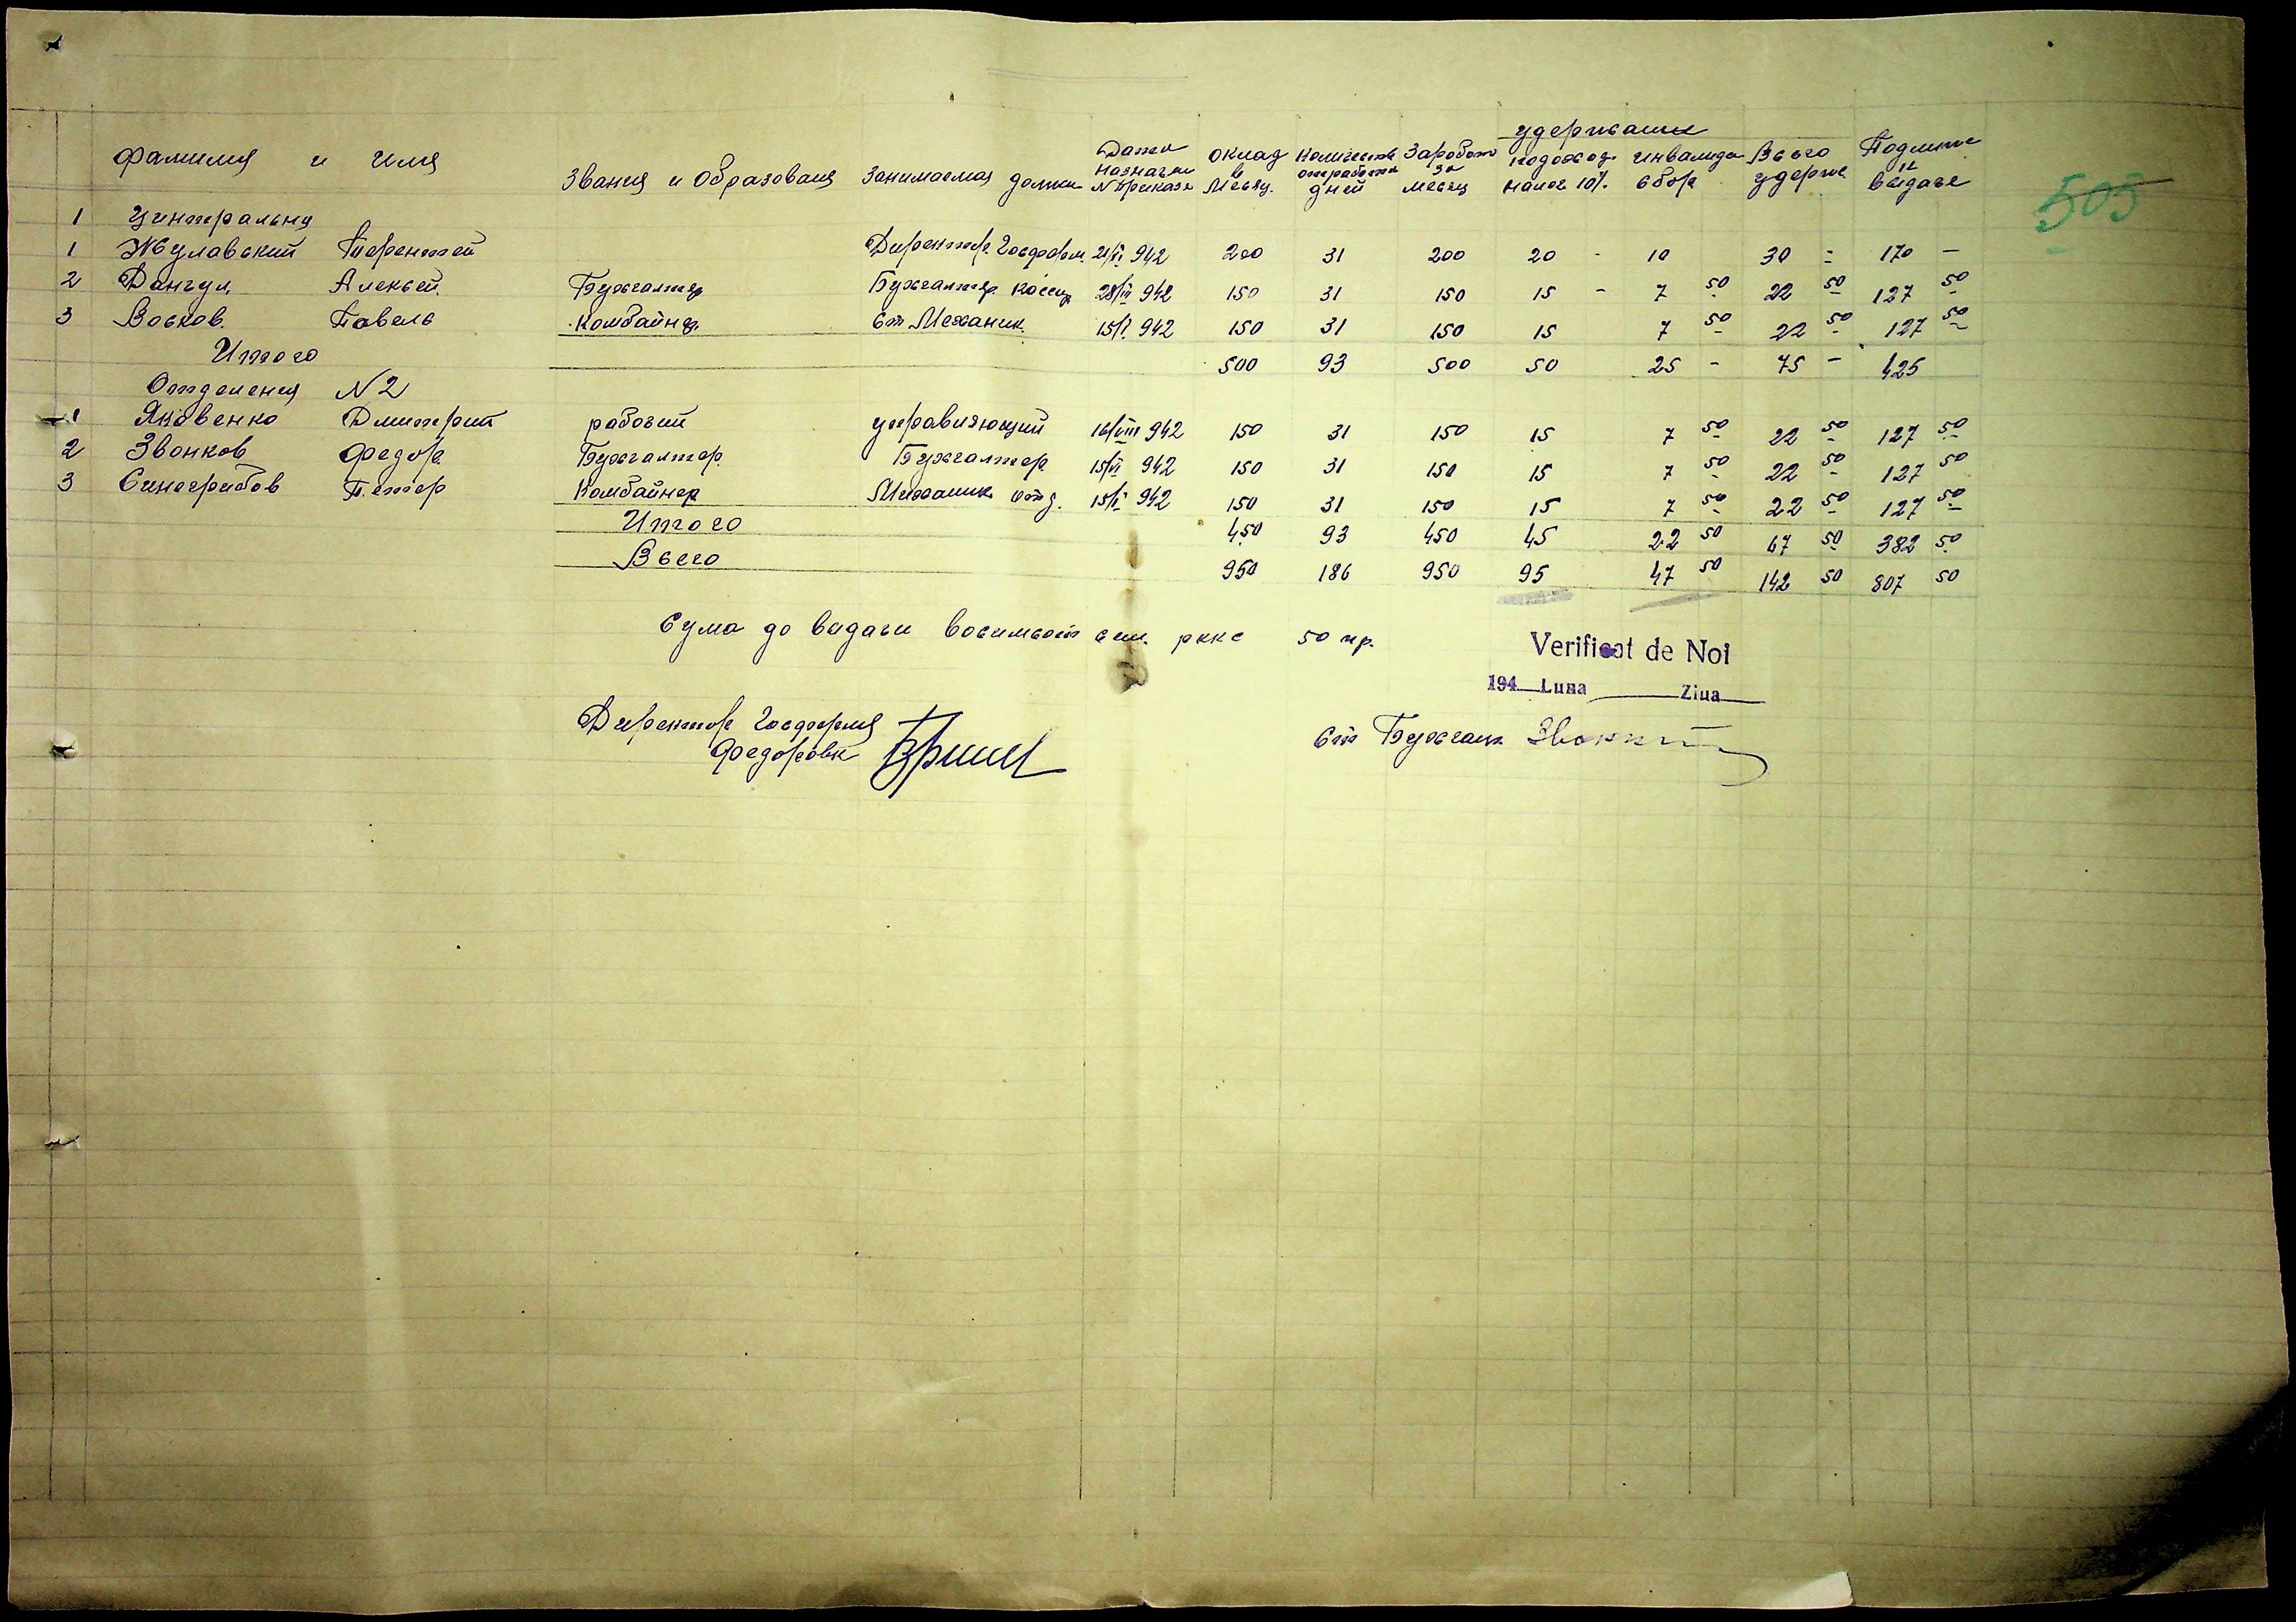 505
удержания
фамилия и имя Звания и Образования Занимаемая должн Дата назначен N приказа оклад в месяц. Количеств отработан дней Заработ за месяц подоход. налог 10% инвалидн сбор Всего удерж. Подлежит к выдаче
1 Центральни
1 Жулавский Терентей Директор. Госферм. 21/VI 942 200 31 200 20 - 10 30 = 170 -
2 Дангул. Алексей. Бухгалтер Бухгалтер. кассир 28/III 942 150 31 150 15 - 7 50 22 50 127 50
3 Восков. Павель Комбайнер. Ст Механик. 15/I. 942 150 31 150 15 7 50 22 50 127 50
Итого 500 93 500 50 25 - 75 - 425
Отделения N 2
1 Яковенко Дмитрий рабочий управляющий 16/VIII 942 150 31 150 15 7 50 22 50 127 50
2 Звонков Федор. Бухгалтер. Бухгалтер. 15/VI 942 150 31 150 15 7 50 22 50 127 50
3 Синегрибов Петер Комбайнер Механик отд. 15/I 942 150 31 150 15 7 50 22 50 127 50
Итого 450 93 450 45 22 50 67 50 382 50
Всего 950 186 950 95 47 50 142 50 807 50
Сума до видачи восимсот сим. рккс 50 пф.
Verificat de Noi
194 Luna Ziua
Директор Госфермя
Федоровк
Ст Бухгалт. Звонк